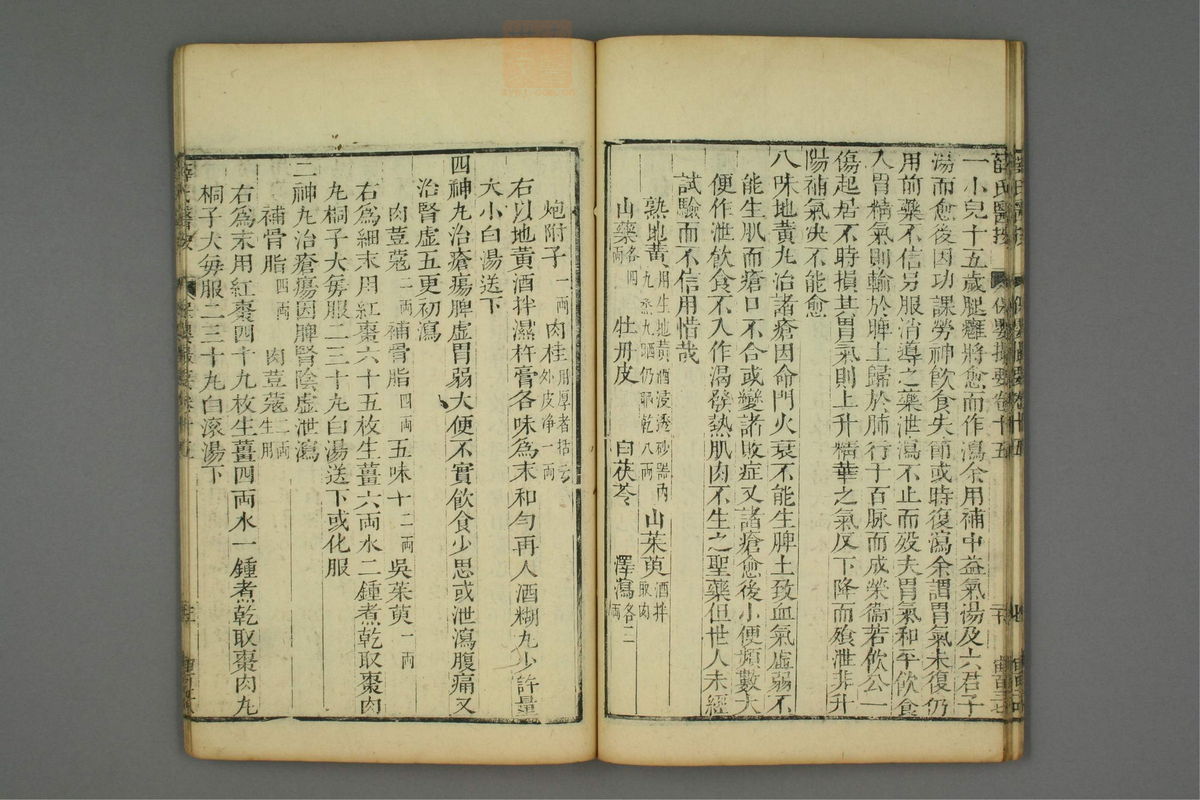 一小兒十五歲腿癰將愈而作瀉余用補中益氣湯及六君子
湯而愈後因功課勞神飲食失節或時復瀉余謂胃氣未復仍
用前藥不信另服消導之藥泄瀉不止而歿夫胃氣和平飲食
入胃精氣則輸於脾土歸於肺行于百脉而成榮衞若飲食一
傷起居不時損其胃氣則上升精華之氣反下降而飱泄非升
陽補氣决不能愈
八味地黃丸治諸瘡因命門火衰不能生脾土致血氣虛弱不
能生肌而瘡口不合或變諸敗症又諸瘡愈後小便頻數大
便作泄飲食不入作渴發熱肌肉不生之聖藥但世人未經
試驗而不信用惜哉
熟地黃用生地黃酒浸透砂器內九烝九晒仍取乾八兩 山茱萸酒拌取肉
山藥各四兩 牡丹皮 白茯苓 澤瀉各三兩
炮附子一兩 肉桂用厚者括去外皮净一兩
右以地黃酒拌濕杵膏各味爲末和勻再入酒糊丸少許量
大小白湯送下
四神丸治瘡瘍脾虛胃弱大便不實飲食少思或泄瀉腹痛又
治腎虛五更初瀉
肉荳蔻二兩 補骨脂四兩 五味十二兩 吳茱萸一兩
右爲細末用紅棗六十五枚生薑六兩水二鍾煮乾取棗肉
丸桐子大每服二三十丸白湯送下或化服
二神丸治瘡瘍因脾腎陰虛泄瀉
補骨脂四兩 肉荳蔻二兩生用
右爲末用紅棗四十九枚生薑四兩水一鍾煮乾取棗肉丸
桐子大每服二三十丸白滾湯下